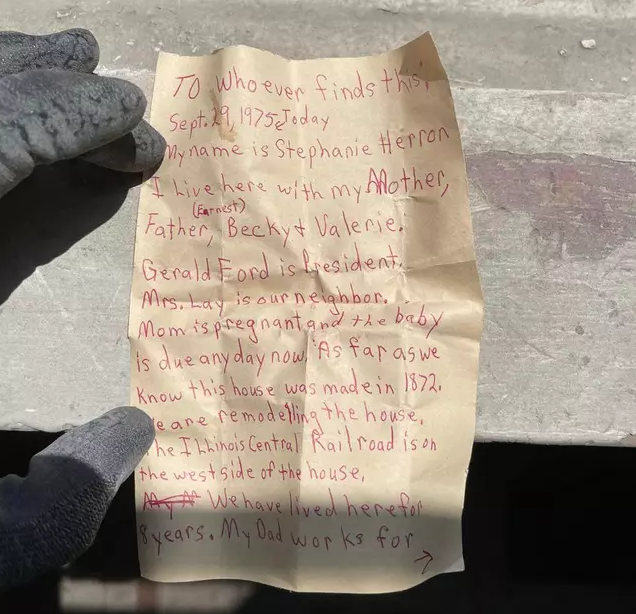 TO Whoever finds this,
Sept. 29, 1975 Today
My name is Stephanie Herron
I Live here with my Mother,
(Earnest)
Father, Becky & Valerie.
Gerald Ford is President.
Mrs. Lay is our neighbor.
Mom is pregnant and the baby
is due any day now. As far as we
know this house was made in 1872.
We are remodelling the house.
The Illinois Central Railroad is on
the west side of the house.
We have lived here for
8 years. My Dad works for →